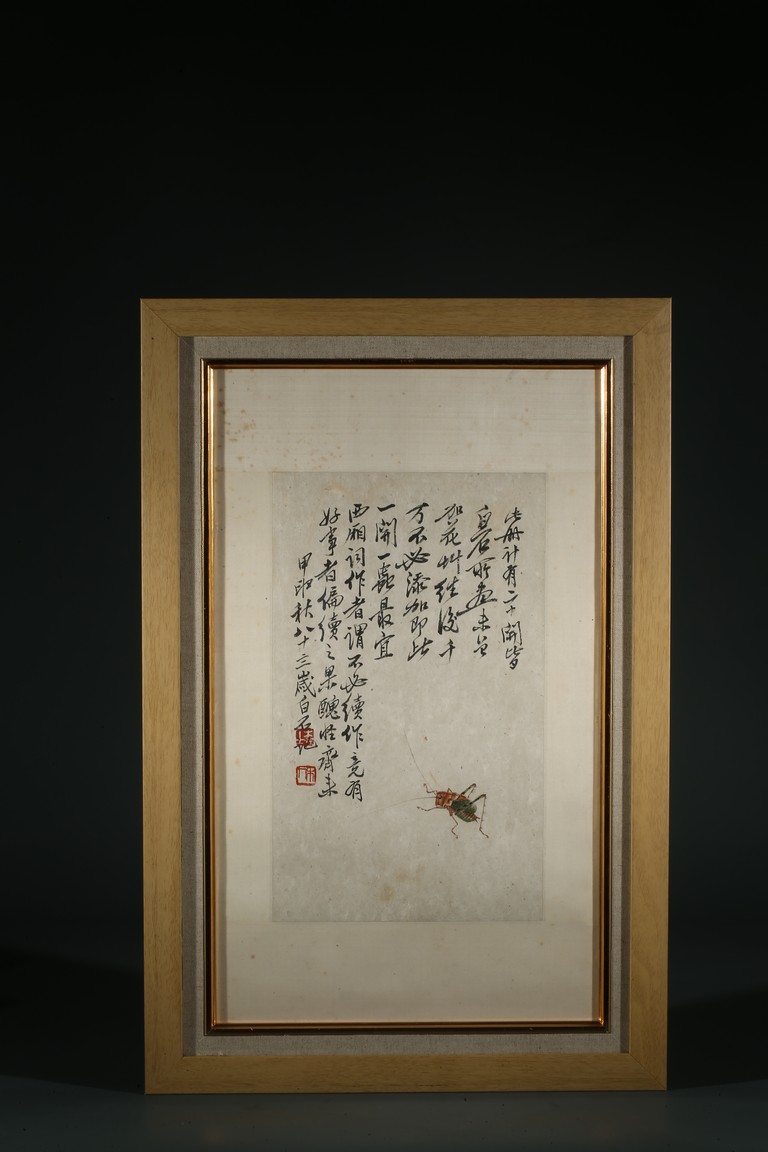 此册计有二十開皆
白石所畫未曾
加花艸往後千
万不必添加即此
一開一蟲最宜
西厢词作者謂不必續作竟有
好事者偏續之果醜怪齊来
甲申秋八十三歲白石記